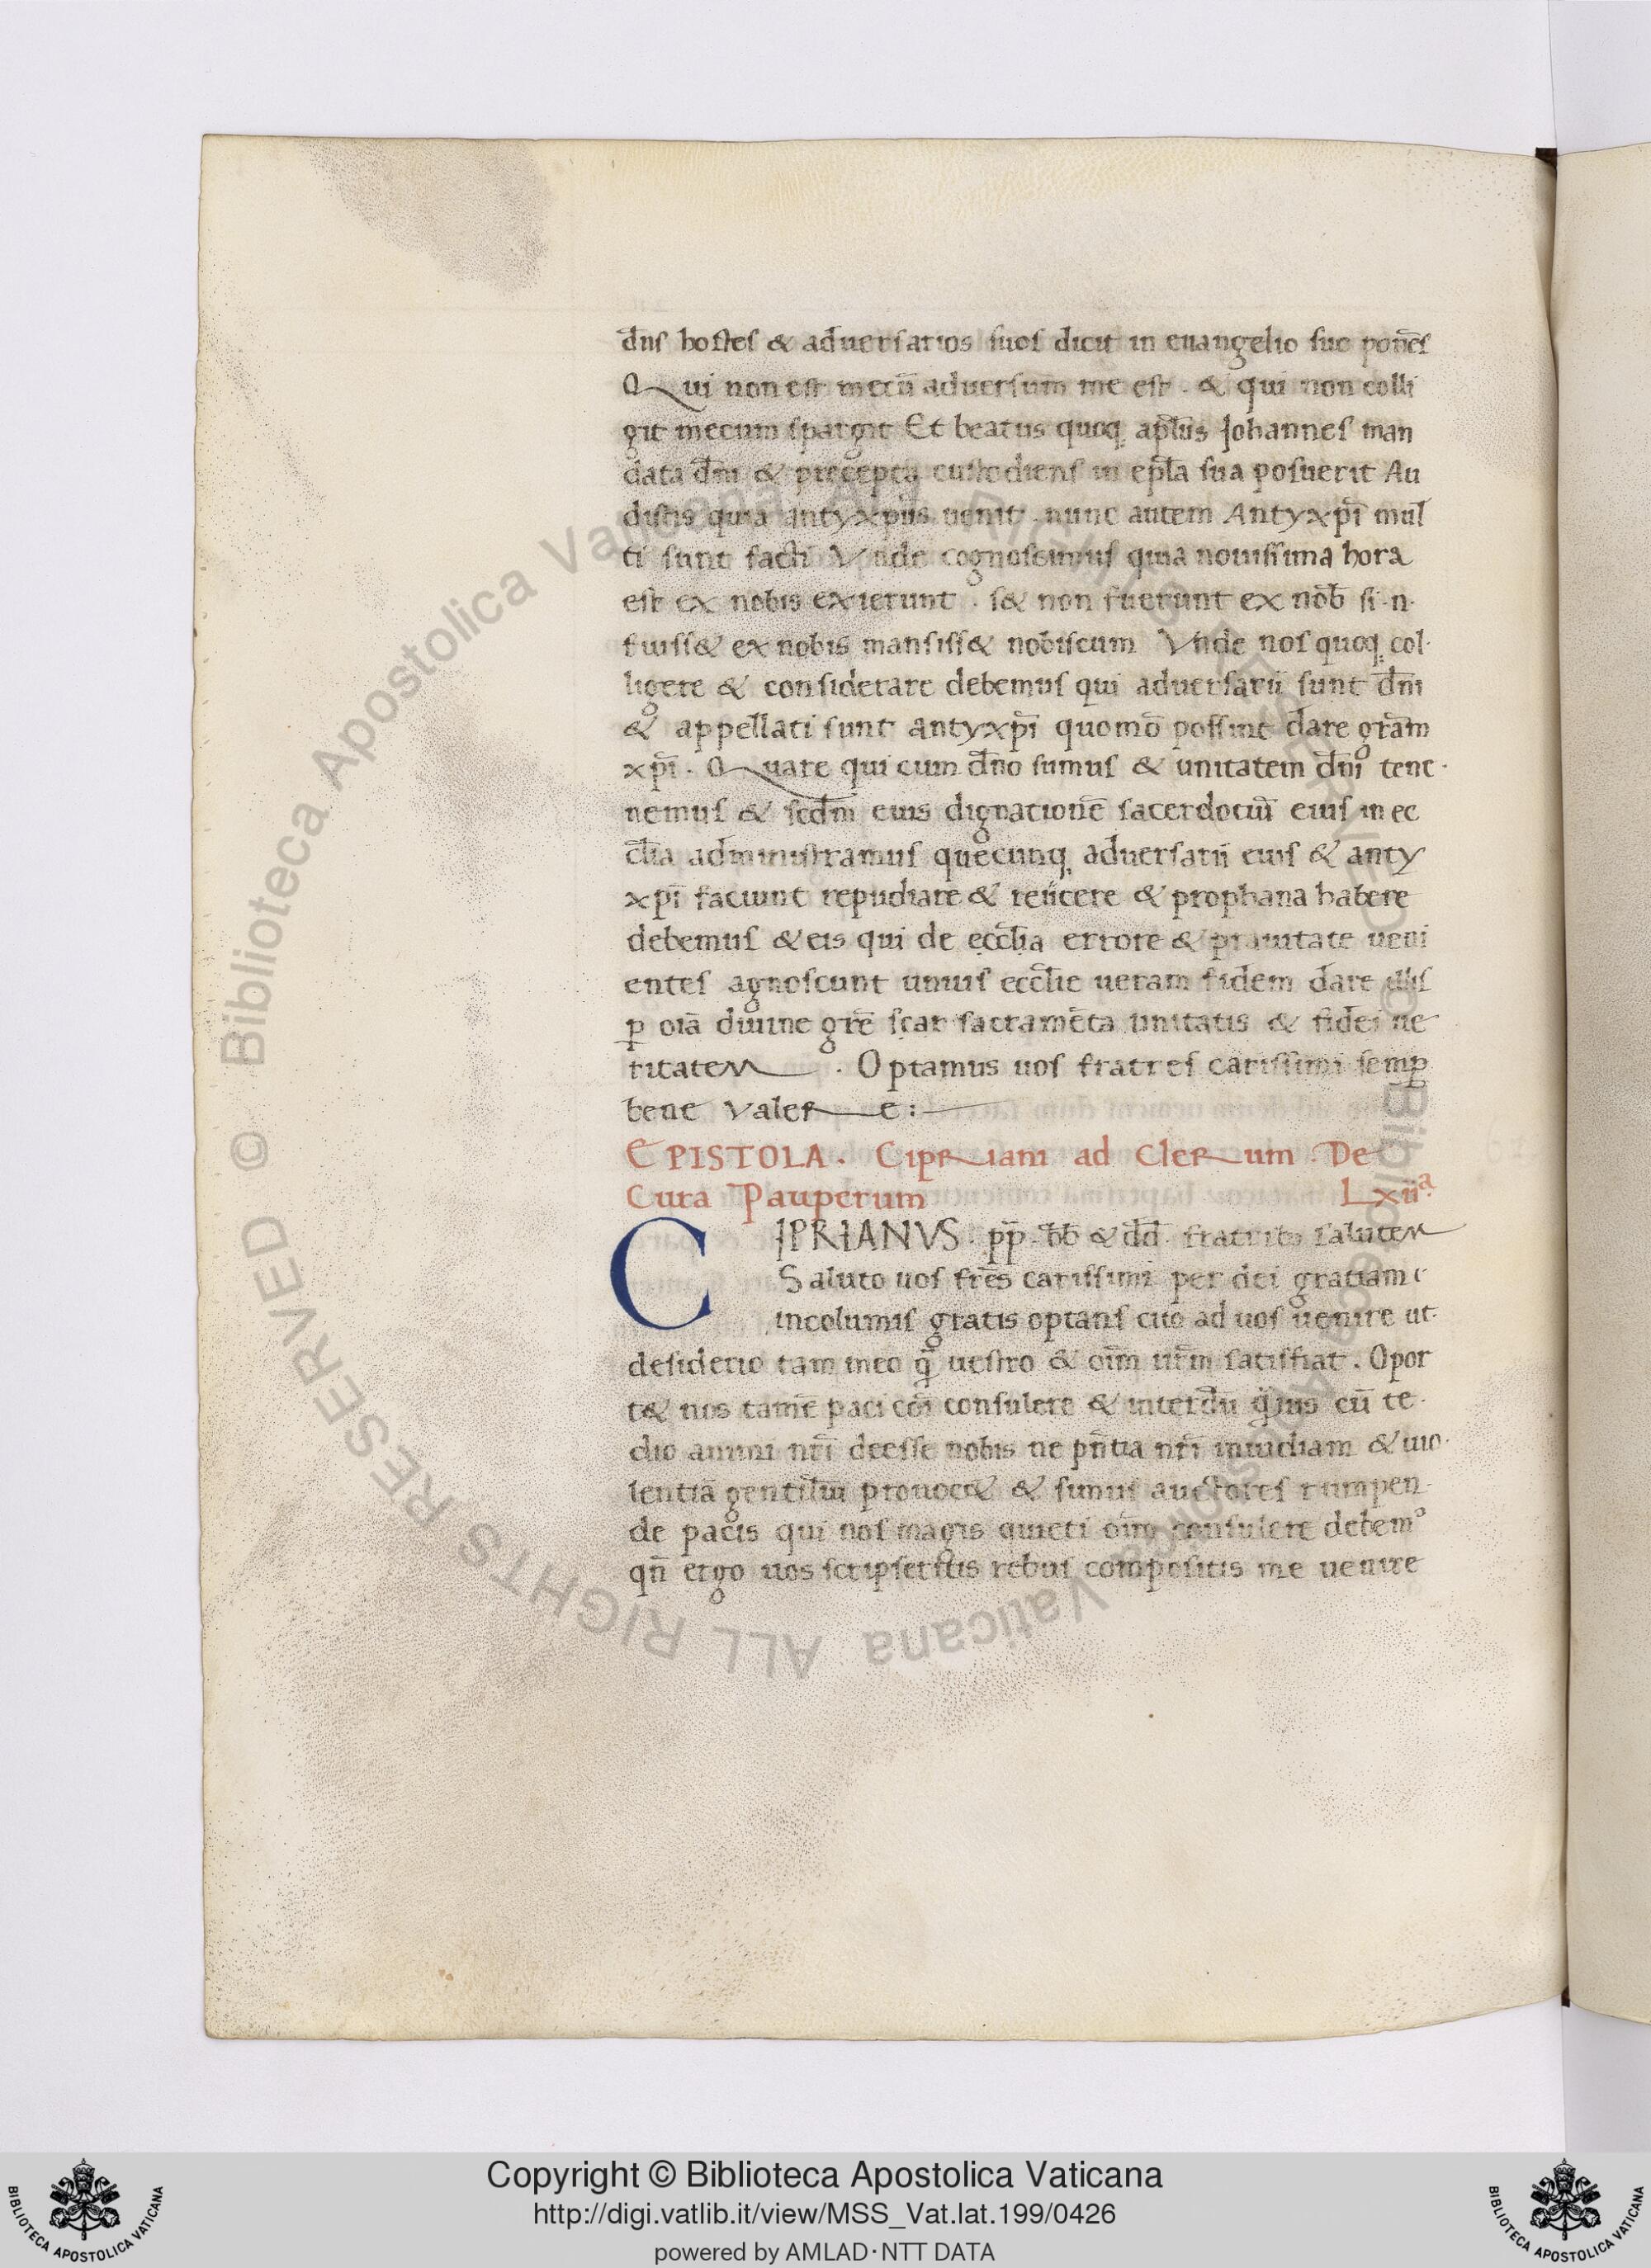 dn̄s hostes & aduersarios suos dicit in euangelio suo ponēs
Qui non est mecū aduersum me est . & qui non colli
git mecum spargit Et beatus quoq; apl̄us Johannes man
data dn̄i & precepta custodiens in epl̄a sua posuerit Au
distis quia antyxp̄us uenit . nunc autem Antyxp̄i mul
ti sunt facti Vnde cognoscimus quia nouissima hora
est ex nobis exierunt . s& non fuerunt ex nob̄ si .n.
fuiss& ex nobis mansiss& nobiscum Vnde nos quoq; col
ligere & considerare debemus qui aduersarii sunt dn̄i
& appellati sunt antyxp̄i quomō possint dare grām
xp̄i . Quare qui cum dn̄o sumus & unitatem dn̄i tene
nemus & scd̄m eius dignationē sacerdotiū eius in ec
cl̄ia administramus quecunq; aduersarii eius & anty
xp̄i faciunt repudiare & reiicere & prophana habere
debemus & eis qui de eccl̄ia errore & prauitate ueni
entes agnoscunt unius eccl̄ie ueram fidem dare illis
p̱ oīa diuine grē scar sacramēta unitatis & fidei ue
ritatem . Optamus uos fratres carissimi semp̱
bene valere :
EPISTOLA . Cipriani ad Clerum . De
Cura Pauperum Lxiiᵃ.
CIPRIANVS . pp̄ . bb̄ & dd̄ . fratrib; salutem
Saluto uos frēs carissimi per dei gratiam
incolumis gratis optans cito ad uos uenire ut
desiderio tam meo q̄ uestro & oīm ur̄m satisfiat . Opor
t& nos tamē paci cōi consulere & interdū q̄uis cū te
dio animi nr̄i deesse nobis ne pn̄tia nr̄i inuidiam & uio
lentiā gentiliū prouoc& & simus auctores rumpen
de pacis qui nos magis quieti oīm consulere debemꝰ
qn̄ ergo uos scripseritis rebus compositis me uenire
© Biblioteca Apostolica Vaticana ALL RIGHTS RESERVED © Biblioteca Apostolica Vaticana ALL RIGHTS RESERVED
BIBLIOTECA APOSTOLICA VATICANA
Copyright © Biblioteca Apostolica Vaticana
http://digi.vatlib.it/view/MSS_Vat.lat.199/0426
powered by AMLAD·NTT DATA
BIBLIOTECA APOSTOLICA VATICANA